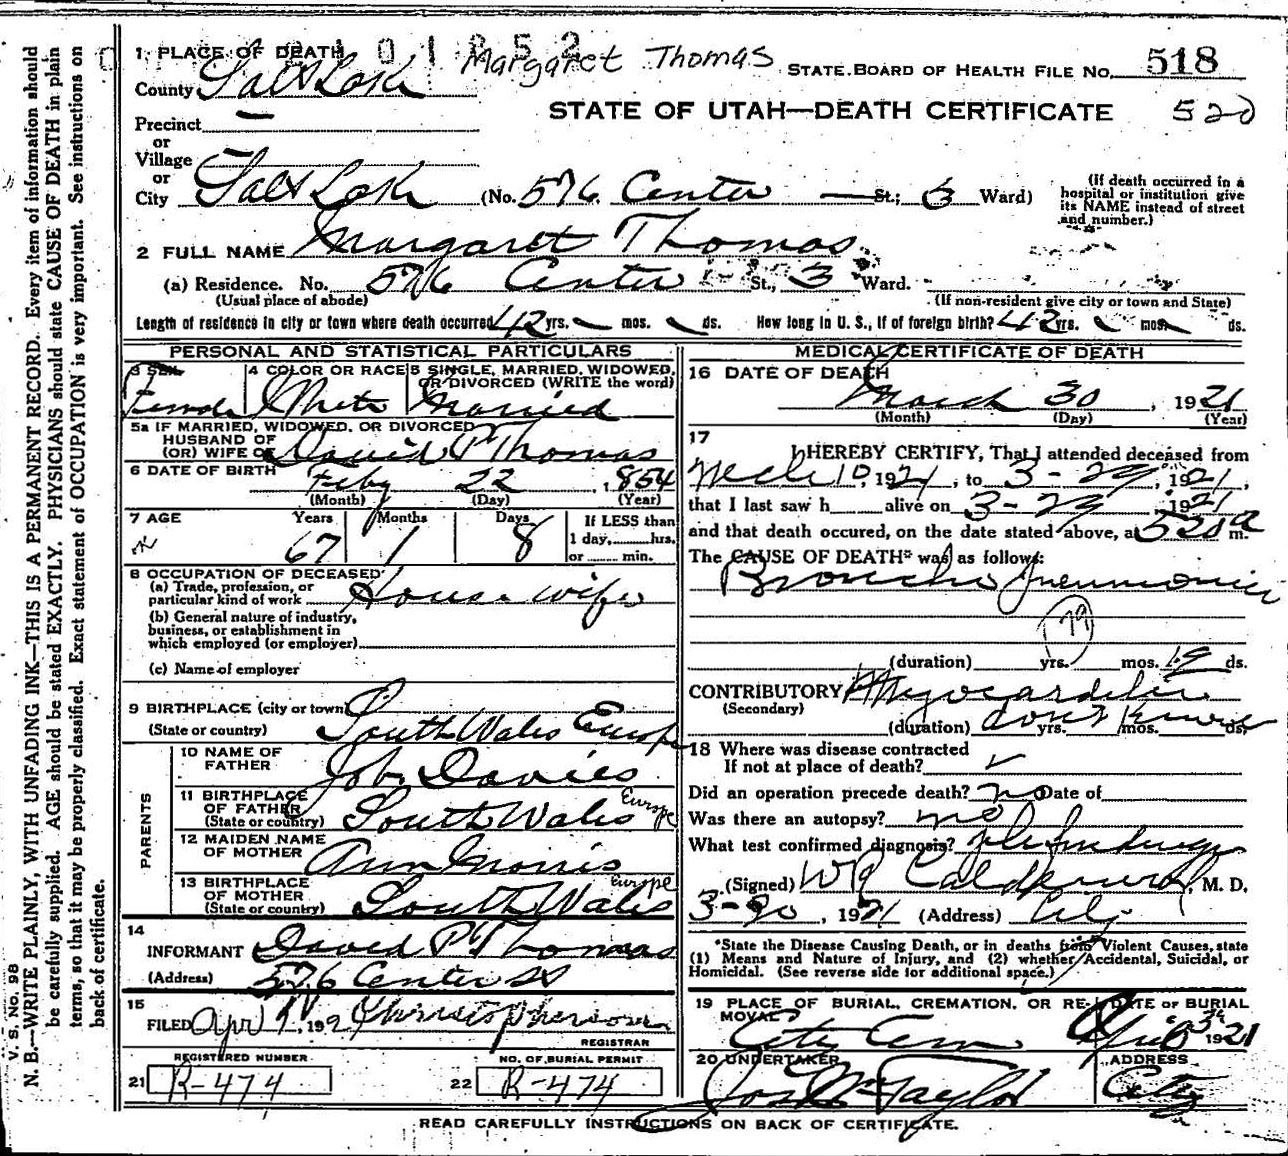 1 PLACE OF DEATH 101852 Margaret Thomas STATE BOARD OF HEALTH FILE NO. 518
County Salt Lake
STATE OF UTAH—DEATH CERTIFICATE 520
Precinct —
or
Village —
or
City Salt Lake (No. 576 Center St.; 3 Ward)
(If death occurred in a hospital or institution give its NAME instead of street and number.)
2 FULL NAME Margaret Thomas
(a) Residence. No. 576 Center St., 3 Ward.
(Usual place of abode) (If non-resident give city or town and State)
Length of residence in city or town where death occurred 42 yrs. mos. ds. How long in U. S., if of foreign birth? 42 yrs. mos. ds.
PERSONAL AND STATISTICAL PARTICULARS
3 SEX 4 COLOR OR RACE 5 SINGLE, MARRIED, WIDOWED, OR DIVORCED (WRITE the word)
Female White Married
5a IF MARRIED, WIDOWED, OR DIVORCED
HUSBAND OF
(OR) WIFE OF David P Thomas
6 DATE OF BIRTH Feby 22, 1854
(Month) (Day) (Year)
7 AGE Years Months Days If LESS than
67 1 8 1 day, hrs.
or min.
8 OCCUPATION OF DECEASED
(a) Trade, profession, or
particular kind of work House wife
(b) General nature of industry,
business, or establishment in
which employed (or employer)
(c) Name of employer
9 BIRTHPLACE (city or town)
(State or country) South Wales Europe
PARENTS
10 NAME OF
FATHER Job Davies
11 BIRTHPLACE
OF FATHER
(State or country) South Wales Europe
12 MAIDEN NAME
OF MOTHER Ann Morris
13 BIRTHPLACE
OF MOTHER
(State or country) South Wales Europe
14
INFORMANT David P Thomas
(Address) 576 Center St
15
FILED Apr 1, 192 Christopherson
REGISTRAR
REGISTERED NUMBER NO. OF BURIAL PERMIT
21 R-474 22 R-474
MEDICAL CERTIFICATE OF DEATH
16 DATE OF DEATH
March 30, 1921
(Month) (Day) (Year)
17
I HEREBY CERTIFY, That I attended deceased from
Mch 10, 1921, to 3-29, 1921,
that I last saw h alive on 3-29, 1921
and that death occured, on the date stated above, at 520 a m.
The CAUSE OF DEATH* was as follows:
Broncho Pneumonia
79
(duration) yrs. mos. 19 ds.
CONTRIBUTORY Myocarditis
(Secondary)
(duration) don't know yrs. mos. ds.
18 Where was disease contracted
If not at place of death?
Did an operation precede death? no Date of
Was there an autopsy? no
What test confirmed diagnosis?
(Signed) M. D.
3-30, 1921 (Address) City
*State the Disease Causing Death, or in deaths from Violent Causes, state
(1) Means and Nature of Injury, and (2) whether Accidental, Suicidal, or
Homicidal. (See reverse side for additional space.)
19 PLACE OF BURIAL, CREMATION, OR REMOVAL DATE OF BURIAL
City Cem 3 1921
20 UNDERTAKER ADDRESS
Jos Wm Taylor City
READ CAREFULLY INSTRUCTIONS ON BACK OF CERTIFICATE.
V. S. No. 98
N. B.—WRITE PLAINLY, WITH UNFADING INK—THIS IS A PERMANENT RECORD. Every item of information should
be carefully supplied. AGE should be stated EXACTLY. PHYSICIANS should state CAUSE OF DEATH in plain
terms, so that it may be properly classified. Exact statement of OCCUPATION is very important. See instructions on
back of certificate.